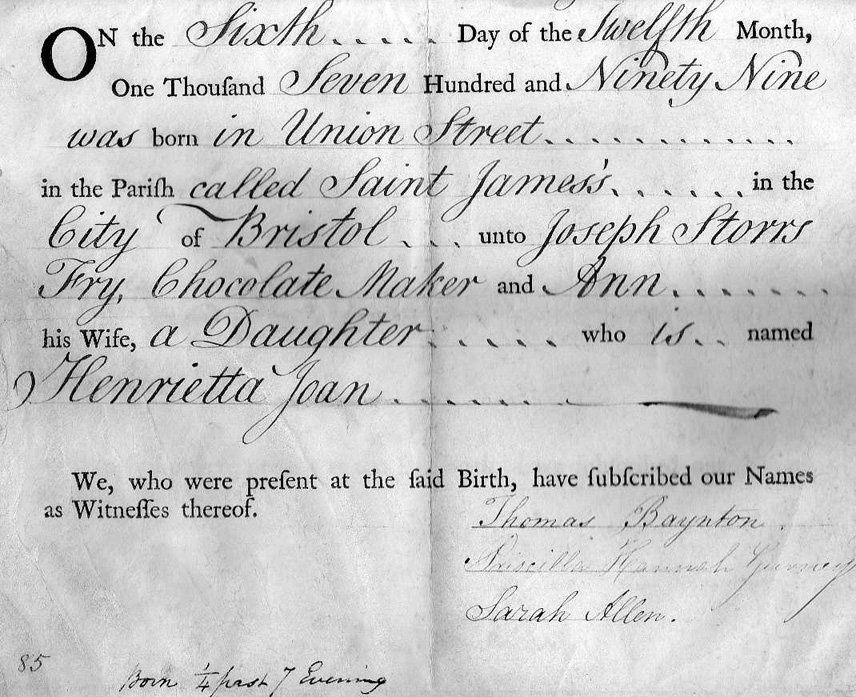 ON the Sixth..... Day of the Twelfth Month,
One Thouſand Seven Hundred and Ninety Nine
was born in Union Street.............
in the Pariſh called Saint James's....... in the
City of Bristol.... unto Joseph Storrs
Fry, Chocolate Maker and Ann........
his Wife, a Daughter...... who is.. named
Henrietta Joan........
We, who were preſent at the ſaid Birth, have ſubſcribed our Names
as Witneſſes thereof.
Thomas Baynton.
Priscilla Hannah Gurney
Sarah Allen.
85
Born ¼ past 7 Evening